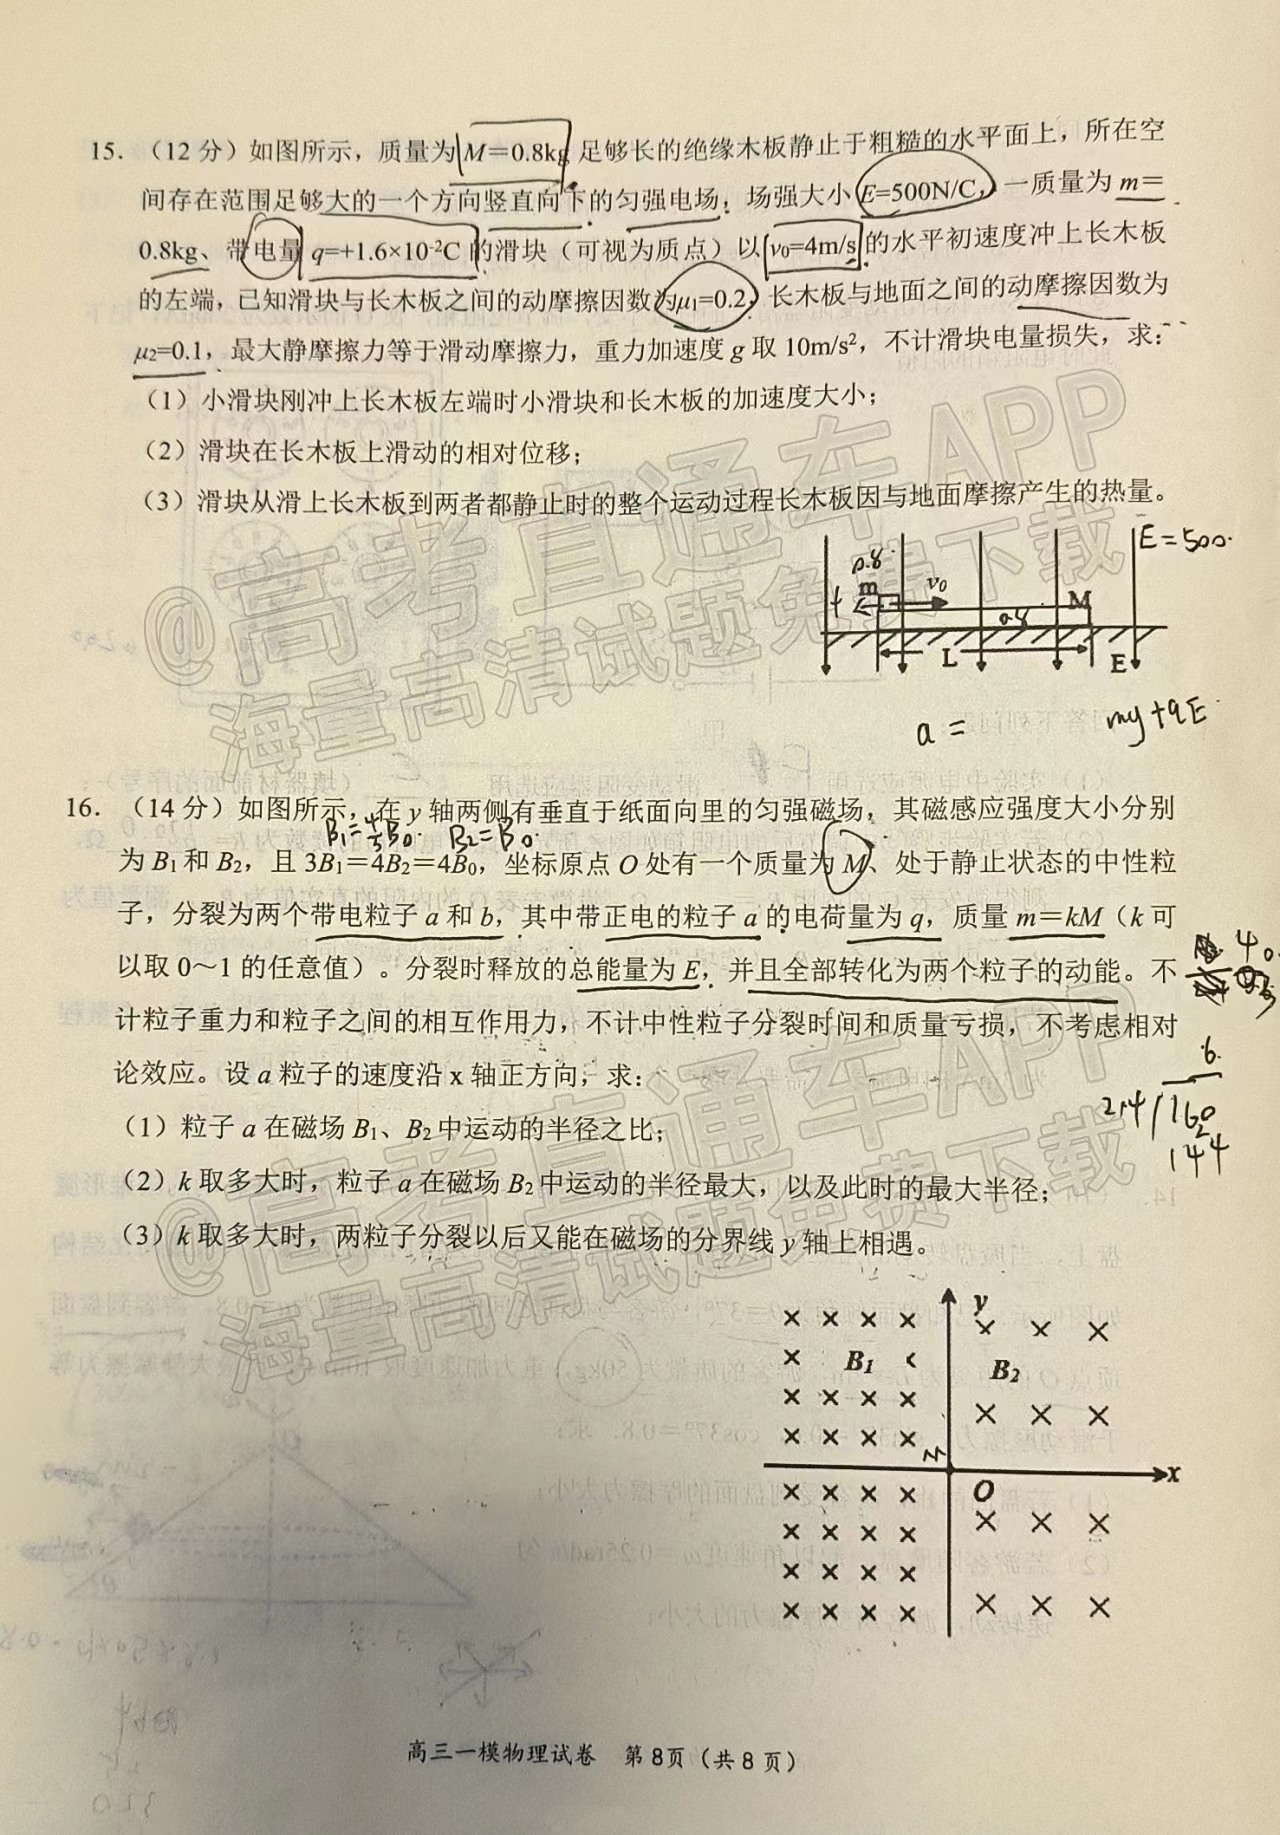 15.（12分）如图所示，质量为M＝0.8kg足够长的绝缘木板静止于粗糙的水平面上，所在空
间存在范围足够大的一个方向竖直向下的匀强电场，场强大小E=500N/C，一质量为m＝
0.8kg、带电量q=+1.6×10⁻²C的滑块（可视为质点）以v₀=4m/s的水平初速度冲上长木板
的左端，已知滑块与长木板之间的动摩擦因数为μ₁=0.2，长木板与地面之间的动摩擦因数为
μ₂=0.1，最大静摩擦力等于滑动摩擦力，重力加速度g取10m/s²，不计滑块电量损失，求：
（1）小滑块刚冲上长木板左端时小滑块和长木板的加速度大小；
（2）滑块在长木板上滑动的相对位移；
（3）滑块从滑上长木板到两者都静止时的整个运动过程长木板因与地面摩擦产生的热量。
E=500
0.8
m
v₀
M
0.8
L
E
a= mg+qE
16.（14分）如图所示，在y轴两侧有垂直于纸面向里的匀强磁场，其磁感应强度大小分别
B₁=4/3B₀ B₂=B₀
为B₁和B₂，且3B₁＝4B₂＝4B₀，坐标原点O处有一个质量为M、处于静止状态的中性粒
子，分裂为两个带电粒子a和b，其中带正电的粒子a的电荷量为q，质量m＝kM（k可
以取0～1的任意值）。分裂时释放的总能量为E，并且全部转化为两个粒子的动能。不
计粒子重力和粒子之间的相互作用力，不计中性粒子分裂时间和质量亏损，不考虑相对
论效应。设a粒子的速度沿x轴正方向，求：
（1）粒子a在磁场B₁、B₂中运动的半径之比；
（2）k取多大时，粒子a在磁场B₂中运动的半径最大，以及此时的最大半径；
（3）k取多大时，两粒子分裂以后又能在磁场的分界线y轴上相遇。
40
6
2.4
160
144
y
B₁
B₂
M
O
x
@高考直通车APP
海量高清试题免费下载
@高考直通车APP
海量高清试题免费下载
高三一模物理试卷 第8页（共8页）